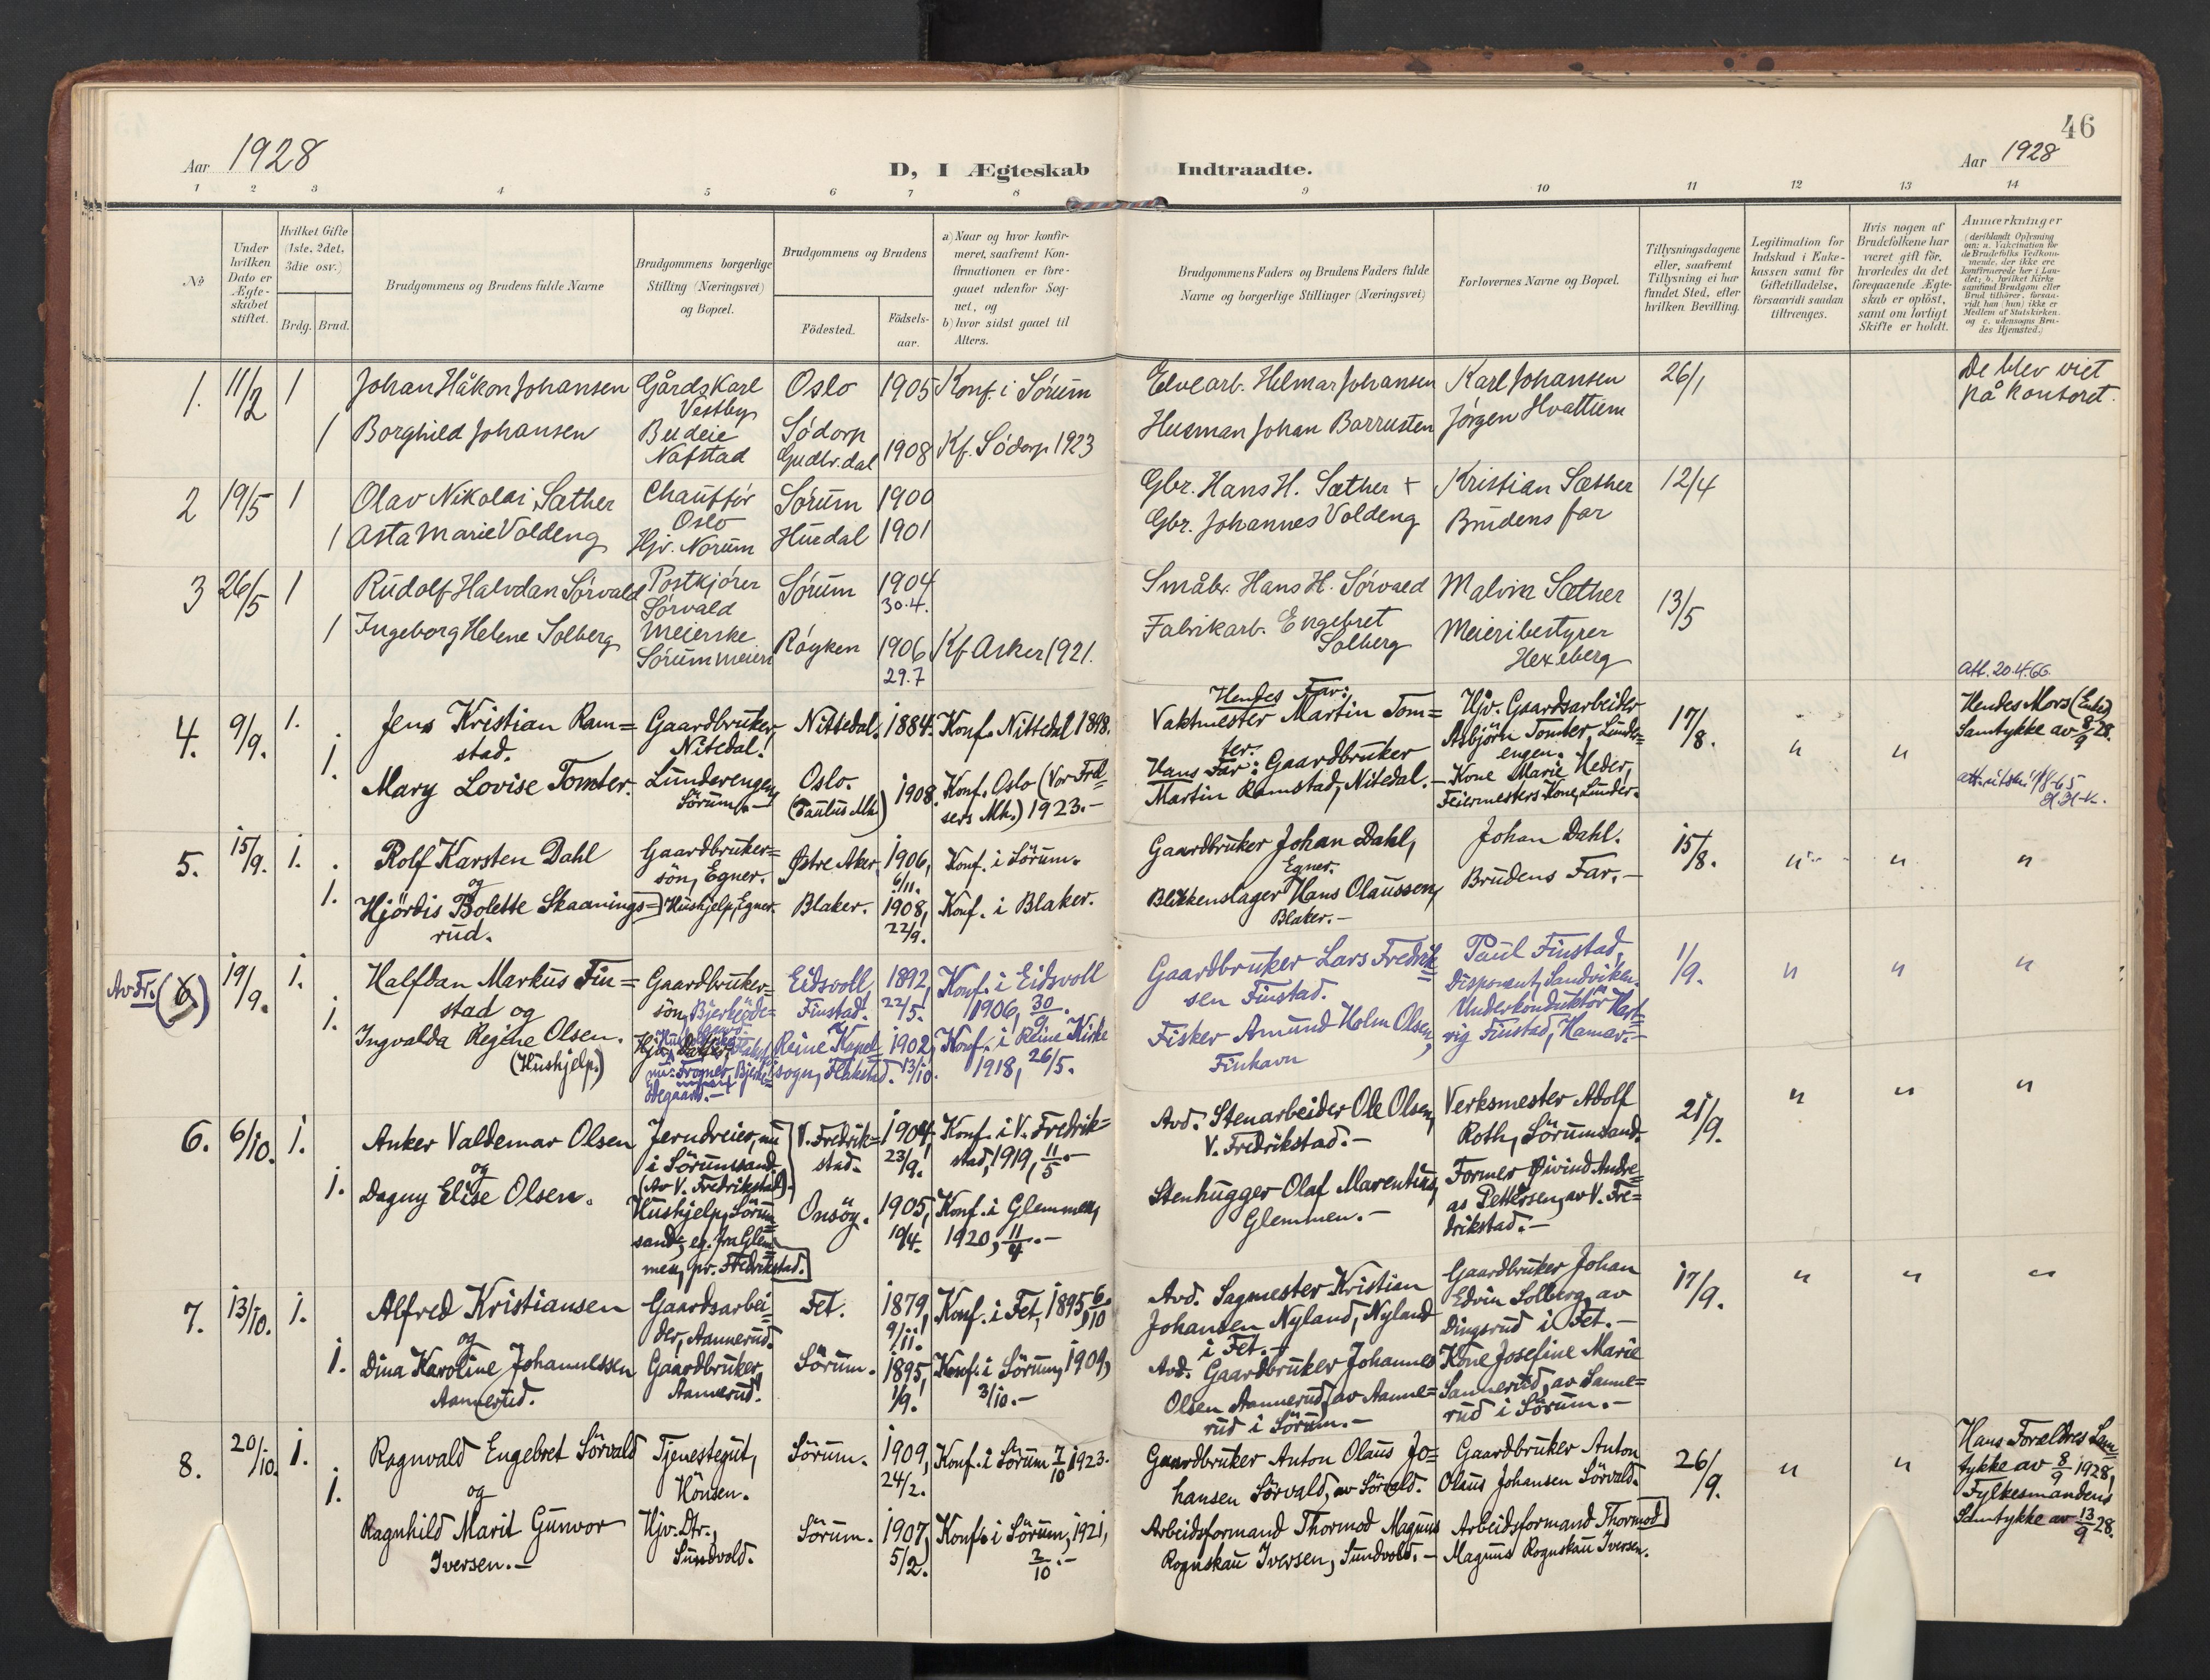 46
Aar 1928
D, I Ægteskab Indtraadte.
Aar 1928
1 2 3 4 5 6 7 8 9 10 11 12 13 14
No
Under hvilken Dato er Ægteskabet stiftet.
Hvilket Gifte (1ste, 2det, 3die osv.)
Brdg. Brud.
Brudgommens og Brudens fulde Navne
Brudgommens borgerlige Stilling (Næringsvei) og Bopæl.
Brudgommens og Brudens
Födested.
Födsels-aar.
a) Naar og hvor konfirmeret, saafremt Konfirmationen er foregaaet udenfor Sognet, og
b) hvor sidst gaaet til Alters.
Brudgommens Faders og Brudens Faders fulde Navne og borgerlige Stillinger (Næringsvei)
Forlovernes Navne og Bopæl.
Tillysningsdagene eller, saafremt Tillysning ei har fundet Sted, efter hvilken Bevilling.
Legitimation for Indskud i Enkekassen samt for Giftetilladelse, forsaavidt saadan tiltrænges.
Hvis nogen af Brudefolkene har været gift för, hvorledes da det foregaaende Ægteskab er oplöst, samt om lovligt Skifte er holdt.
Anmærkninger
(deriblandt Oplysning om: a. Vakcination for de Brudefolks Vedkommende, der ikke ere konfirmerede her i Landet; b. hvilket Kirkesamfund Brudgom eller Brud tilhörer, forsaavidt han (hun) ikke er Medlem af Statskirken. og c. udensogns Brudes Hjemsted.)
1. 11/2 1 Johan Håkon Johansen Gårdskarl Vestby Oslo 1905 Konf. i Sørum Elvearb. Helmar Johansen Karl Johansen 26/1 De blev viet på kontoret.
1 Borghild Johansen Budeie Nafstad Södorp Gudbr.dal 1908 Kf. Södorp 1923 Husman Johan Barrusten Jørgen Hvattum
2 19/5 1 Olav Nikolai Sæther Chauffør Oslo Sørum 1900 Gbr. Hans H. Sæther + Kristian Sæther 12/4
1 Asta Marie Voldeng Hjv. Norum Hurdal 1901 Gbr. Johannes Voldeng Brudens far
3 26/5 1 Rudolf Halvdan Sørvald Postkjører Sørvald Sørum 1904 30.4. Småbr. Hans H. Sørvald Malvin Sæther 13/5
1 Ingeborg Helene Solberg Meierske Sørum meieri Røyken 1906 29.7 Kf Asker 1921. Fabrikarb. Engebret Solberg Meieribestyrer Hexeberg
Att. 20.4.66.
4. 9/9. 1. Jens Kristian Ramstad. Gaardbruker, Nitedal. Nittedal. 1884. Konf. Nittedal 1898. Hendes Far: Vaktmester Martin Tomter. Hjv. Gaardsarbeider Asbjörn Tomter, Lunderengen. 17/8. " " Hendes Mors (Enke) Samtykke av 8/9 28.
1. Mary Lovise Tomter. Lunderengen, Sörum.- Oslo. (Paulus Mh.) 1908. Konf. Oslo (Vor Frelsers Mh.) 1923.- Hans Far: Gaardbruker Martin Ramstad, Nitedal.- Kone Marie Heder, Feiermesters Kone, Lunder.
5. 15/9. 1. Rolf Karsten Dahl og Gaardbrukersön, Egner. Østre Aker. 1906, 6/11. Konf. i Sörum. Gaardbruker Johan Dahl, Egner. Johan Dahl. 15/8. " " "
1. Hjördis Bolette Skaaningsrud. Hushjelp, Egner. Blaker. 1908, 22/9. Konf. i Blaker. Blikkenslager Hans Olaussen, Blaker.- Brudens Far.-
Avdr. (6) 19/9. 1. Halfdan Markus Finstad og Gaardbrukersön, Eidsvoll, Finstad. 1892, 22/5. Konf. i Eidsvoll 1906, 30/9. Gaardbruker Lars Fredriksen Finstad. Paul Finstad, Disponent, Sandviken. 1/9. " " "
1. Ingvalda Regine Olsen. (Hushjelp.) Reine Kapelsogn, Flakstad. 1902, 13/10. Konf. i Reine Kirke 1918, 26/5. Fisker Amund Holm Olsen, Finhavn Underkonduktör Hartvig Finstad, Hamar.-
6. 6/10. 1. Anker Valdemar Olsen og Jerndreier, nu i Sörumsand. (Av V. Fredrikstad).- V. Fredrikstad. 1904, 23/9. Konf. i V. Fredrikstad, 1919, 11/5.- Avd. Stenarbeider Ole Olsen, V. Fredrikstad.- Verksmester Adolf Roth, Sörumsand. 21/9. " " "
1. Dagny Elise Olsen. Hushjelp, Sörumsand, eg. fra Glemmen, pr. Fredrikstad. Onsöy. 1905, 19/4. Konf. i Glemmen, 1920, 11/4.- Stenhugger Olaf Marentius, Glemmen.- Former Øivind Andreas Pettersen, av V. Fredrikstad.-
7. 13/10. 1. Alfred Kristiansen og Gaardsarbeider, Aannerud. Fet. 1879, 9/11. Konf. i Fet, 1895, 6/10 Avd. Sagmester Kristian Johansen Nyland, Nyland i Fet.- Gaardbruker Johan Edvin Solberg, av Dingsrud i Fet.- 17/9. " " "
1. Dina Karoline Johannessen Aannerud. Gaardbruker, Aannerud. Sörum. 1895, 1/9. Konf. i Sörum, 1909, 3/10.- Avd. Gaardbruker Johannes Olsen Aannerud, av Aannerud i Sörum.- Kone Josefine Marie Sannerud, av Sannerud i Sörum.-
8. 20/10. 1. Ragnvald Engebret Sörvald og Tjenestegut, Hönsen. Sörum. 1909, 24/2. Konf. i Sörum 7/10 1923. Gaardbruker Anton Olaus Johansen Sörvald, av Sörvald. Gaardbruker Anton Olaus Johansen Sörvald. 26/9. " " Hans Forældres Samtykke av 8/9 1928, Fylkesmandens Samtykke av 13/9 28.
1. Ragnhild Marit Gunvor Iversen.- Hjv. Dtr., Sundvold. Sörum. 1907, 5/2. Konf. i Sörum, 1921, 2/10.- Arbeidsformand Thormod Magnus Rognskau Iversen, Sundvold.- Arbeidsformand Thormod Magnus Rognskau Iversen.